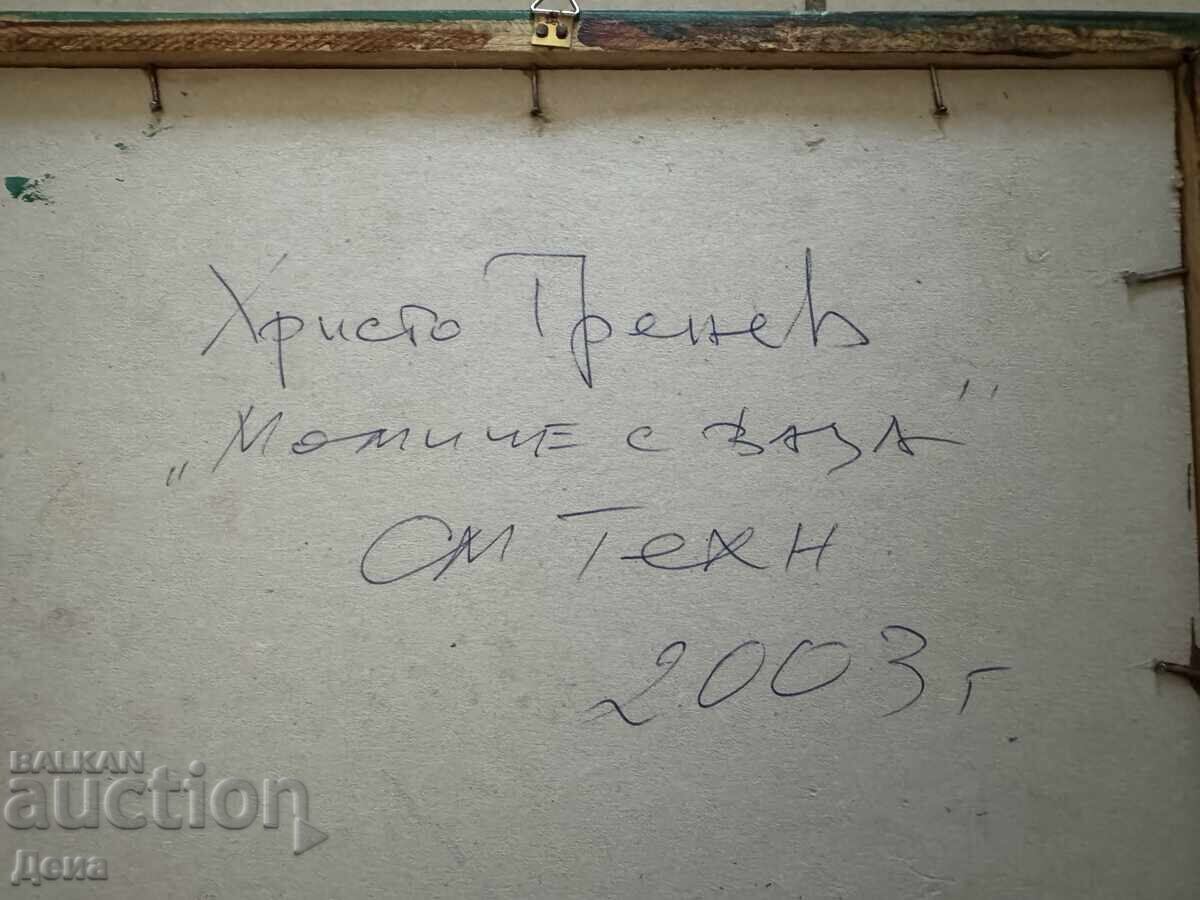 Христо Пренев
„Момиче с ваза"
см техн
2003 г
BALKAN
auction
Деиа